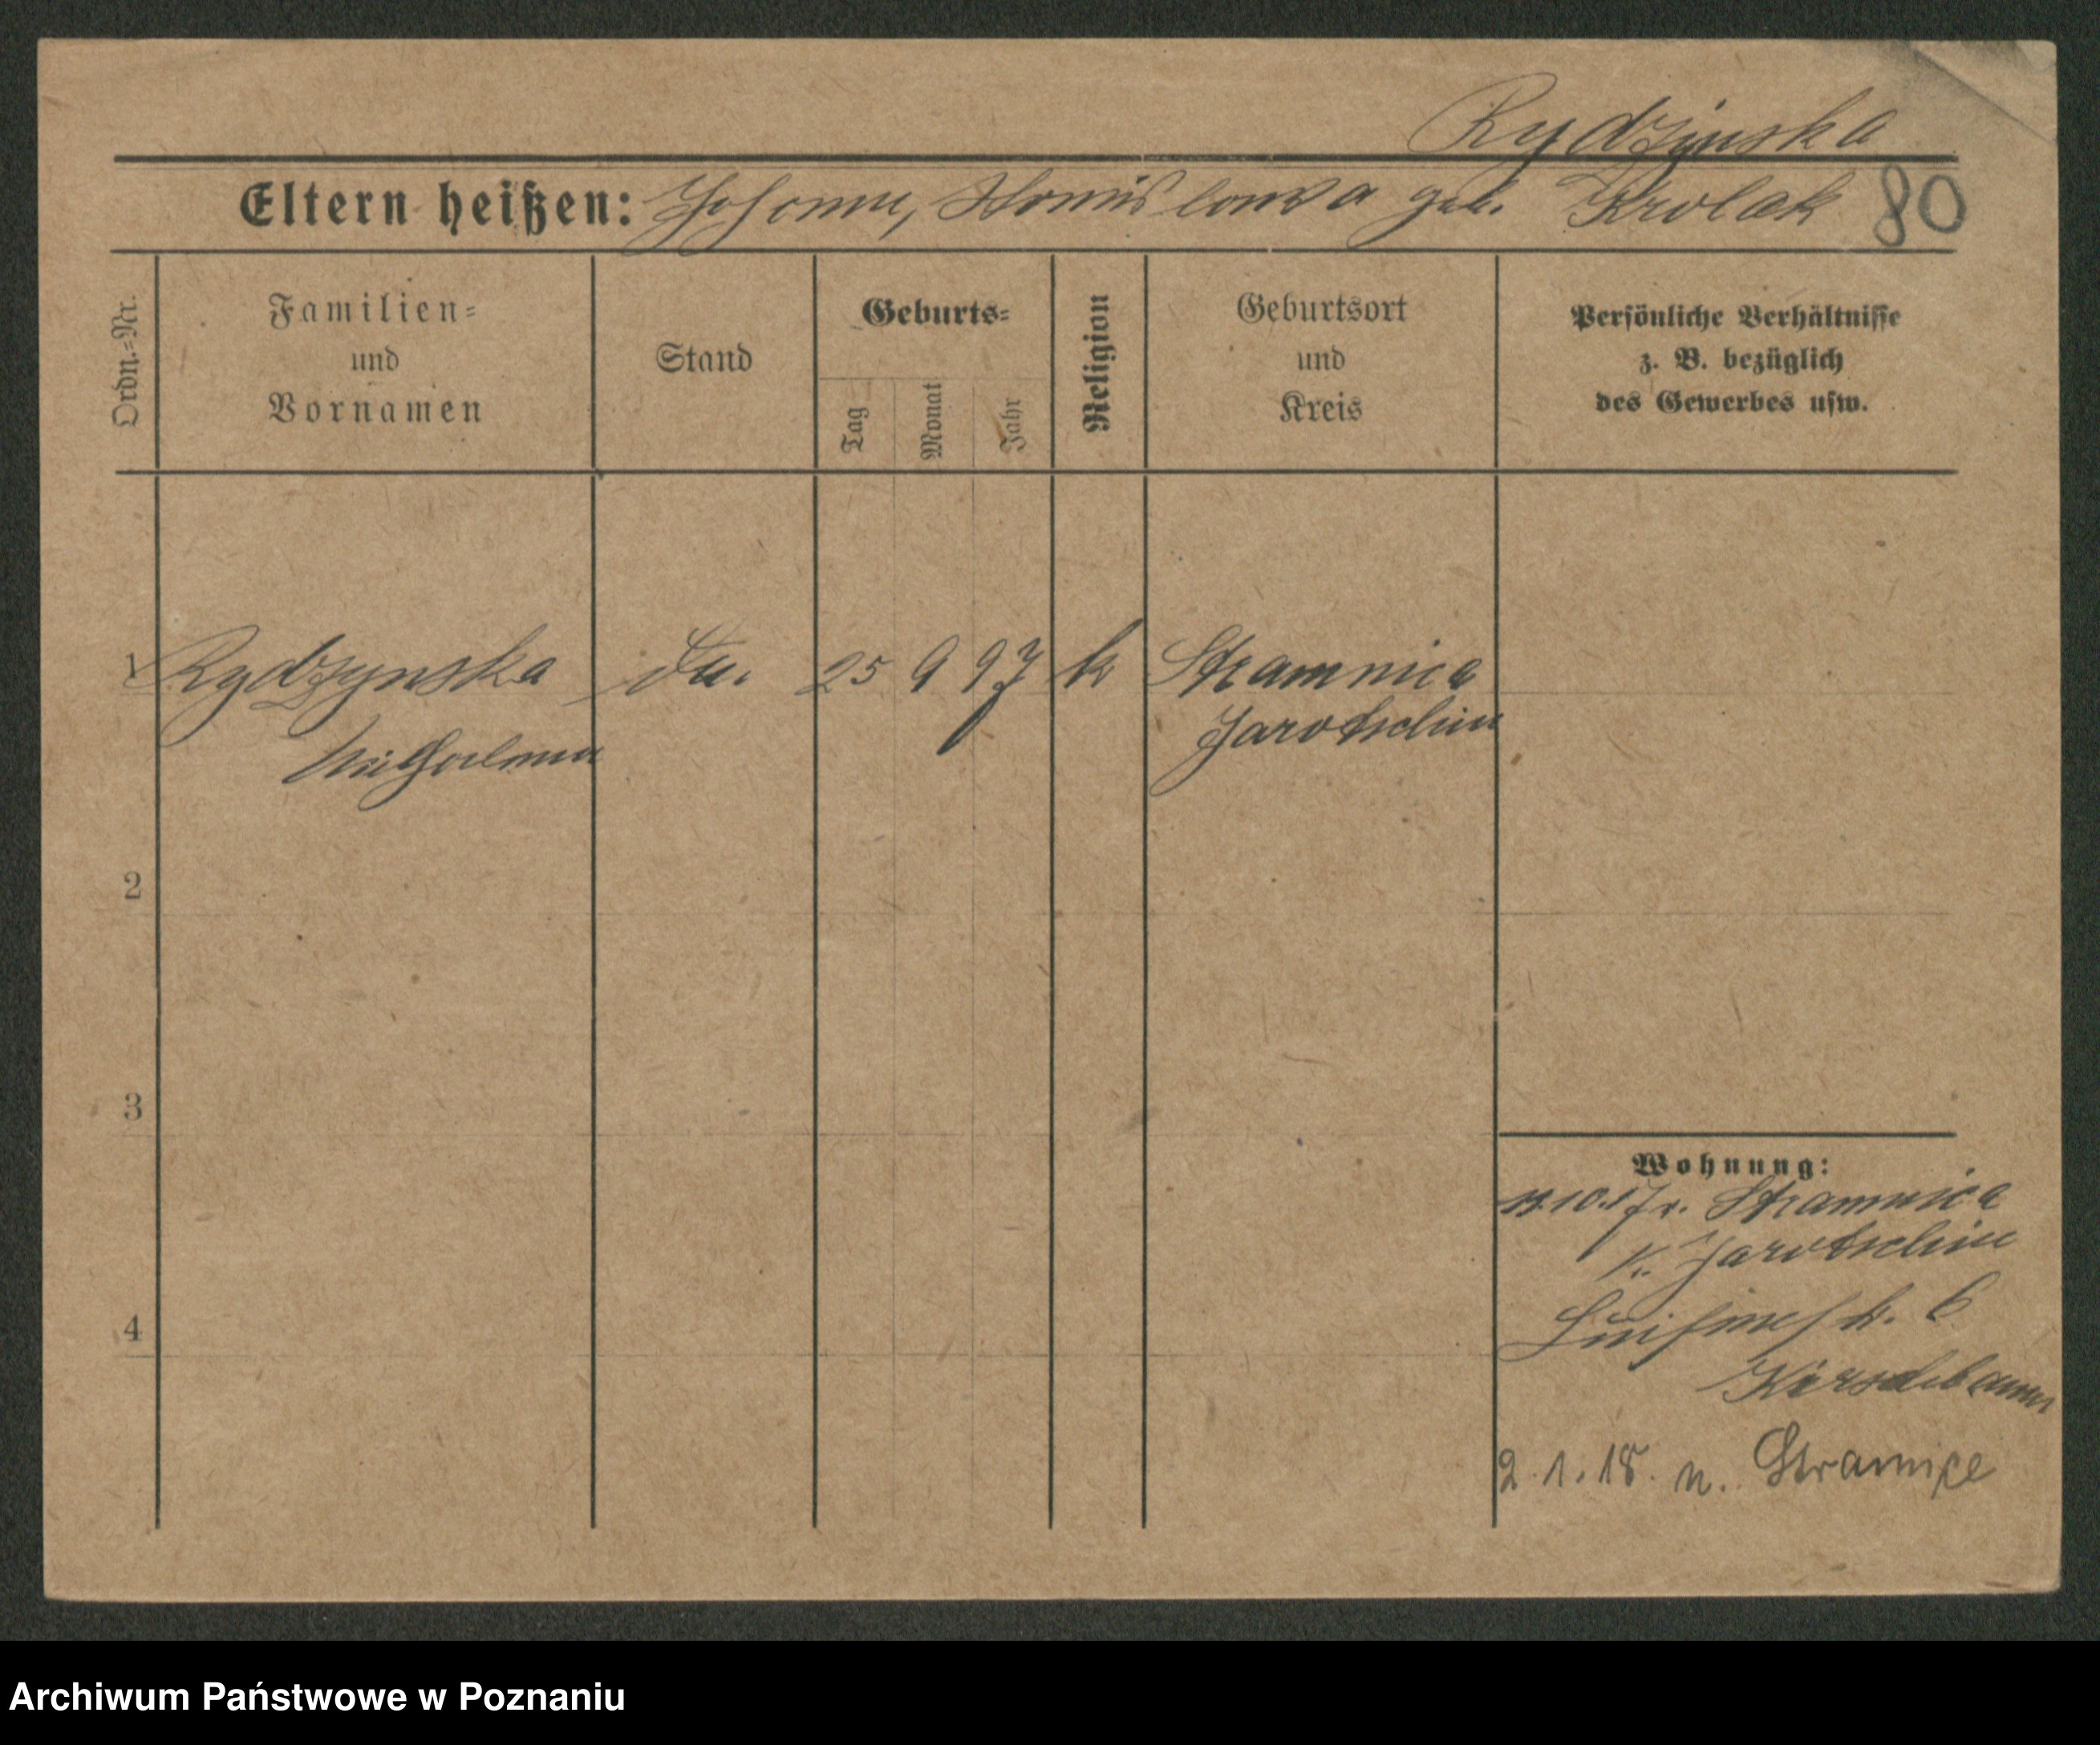 Rydzynska
Eltern heißen: Johann, Stanislawa geb. Krolak 80
Ordn.=Nr.
Familien=
und
Vornamen
Stand
Geburts=
Tag
Monat
Jahr
Religion
Geburtsort
und
Kreis
Persönliche Verhältnisse
z. B. bezüglich
des Gewerbes usw.
1 Rydzynska 25 9 97 k Stramnica
Jarotschin
2
3
4
Wohnung:
10.17 v. Stramnica
K. Jarotschin
Luisenstr. 6
2.1.18. n. Stramice
Archiwum Państwowe w Poznaniu